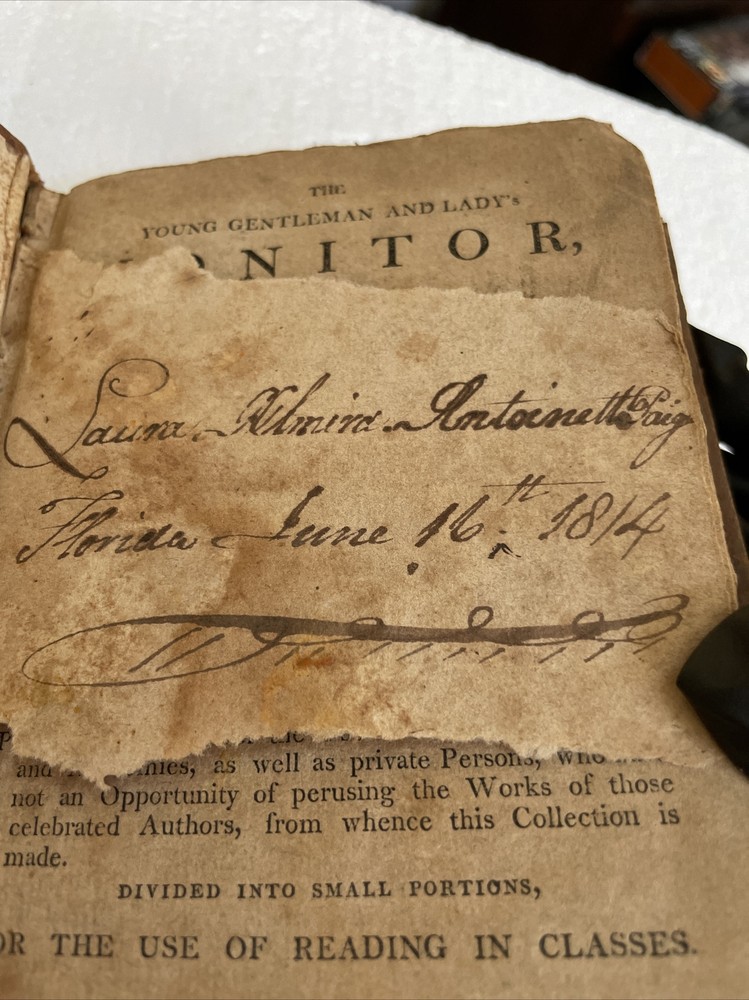 THE
YOUNG GENTLEMAN AND LADY's
MONITOR,
Laura Almira Antoinette Paig
Florida June 16th. 1814
and as well as private Persons, who
not an Opportunity of perusing the Works of those
celebrated Authors, from whence this Collection is
made.
DIVIDED INTO SMALL PORTIONS,
OR THE USE OF READING IN CLASSES.